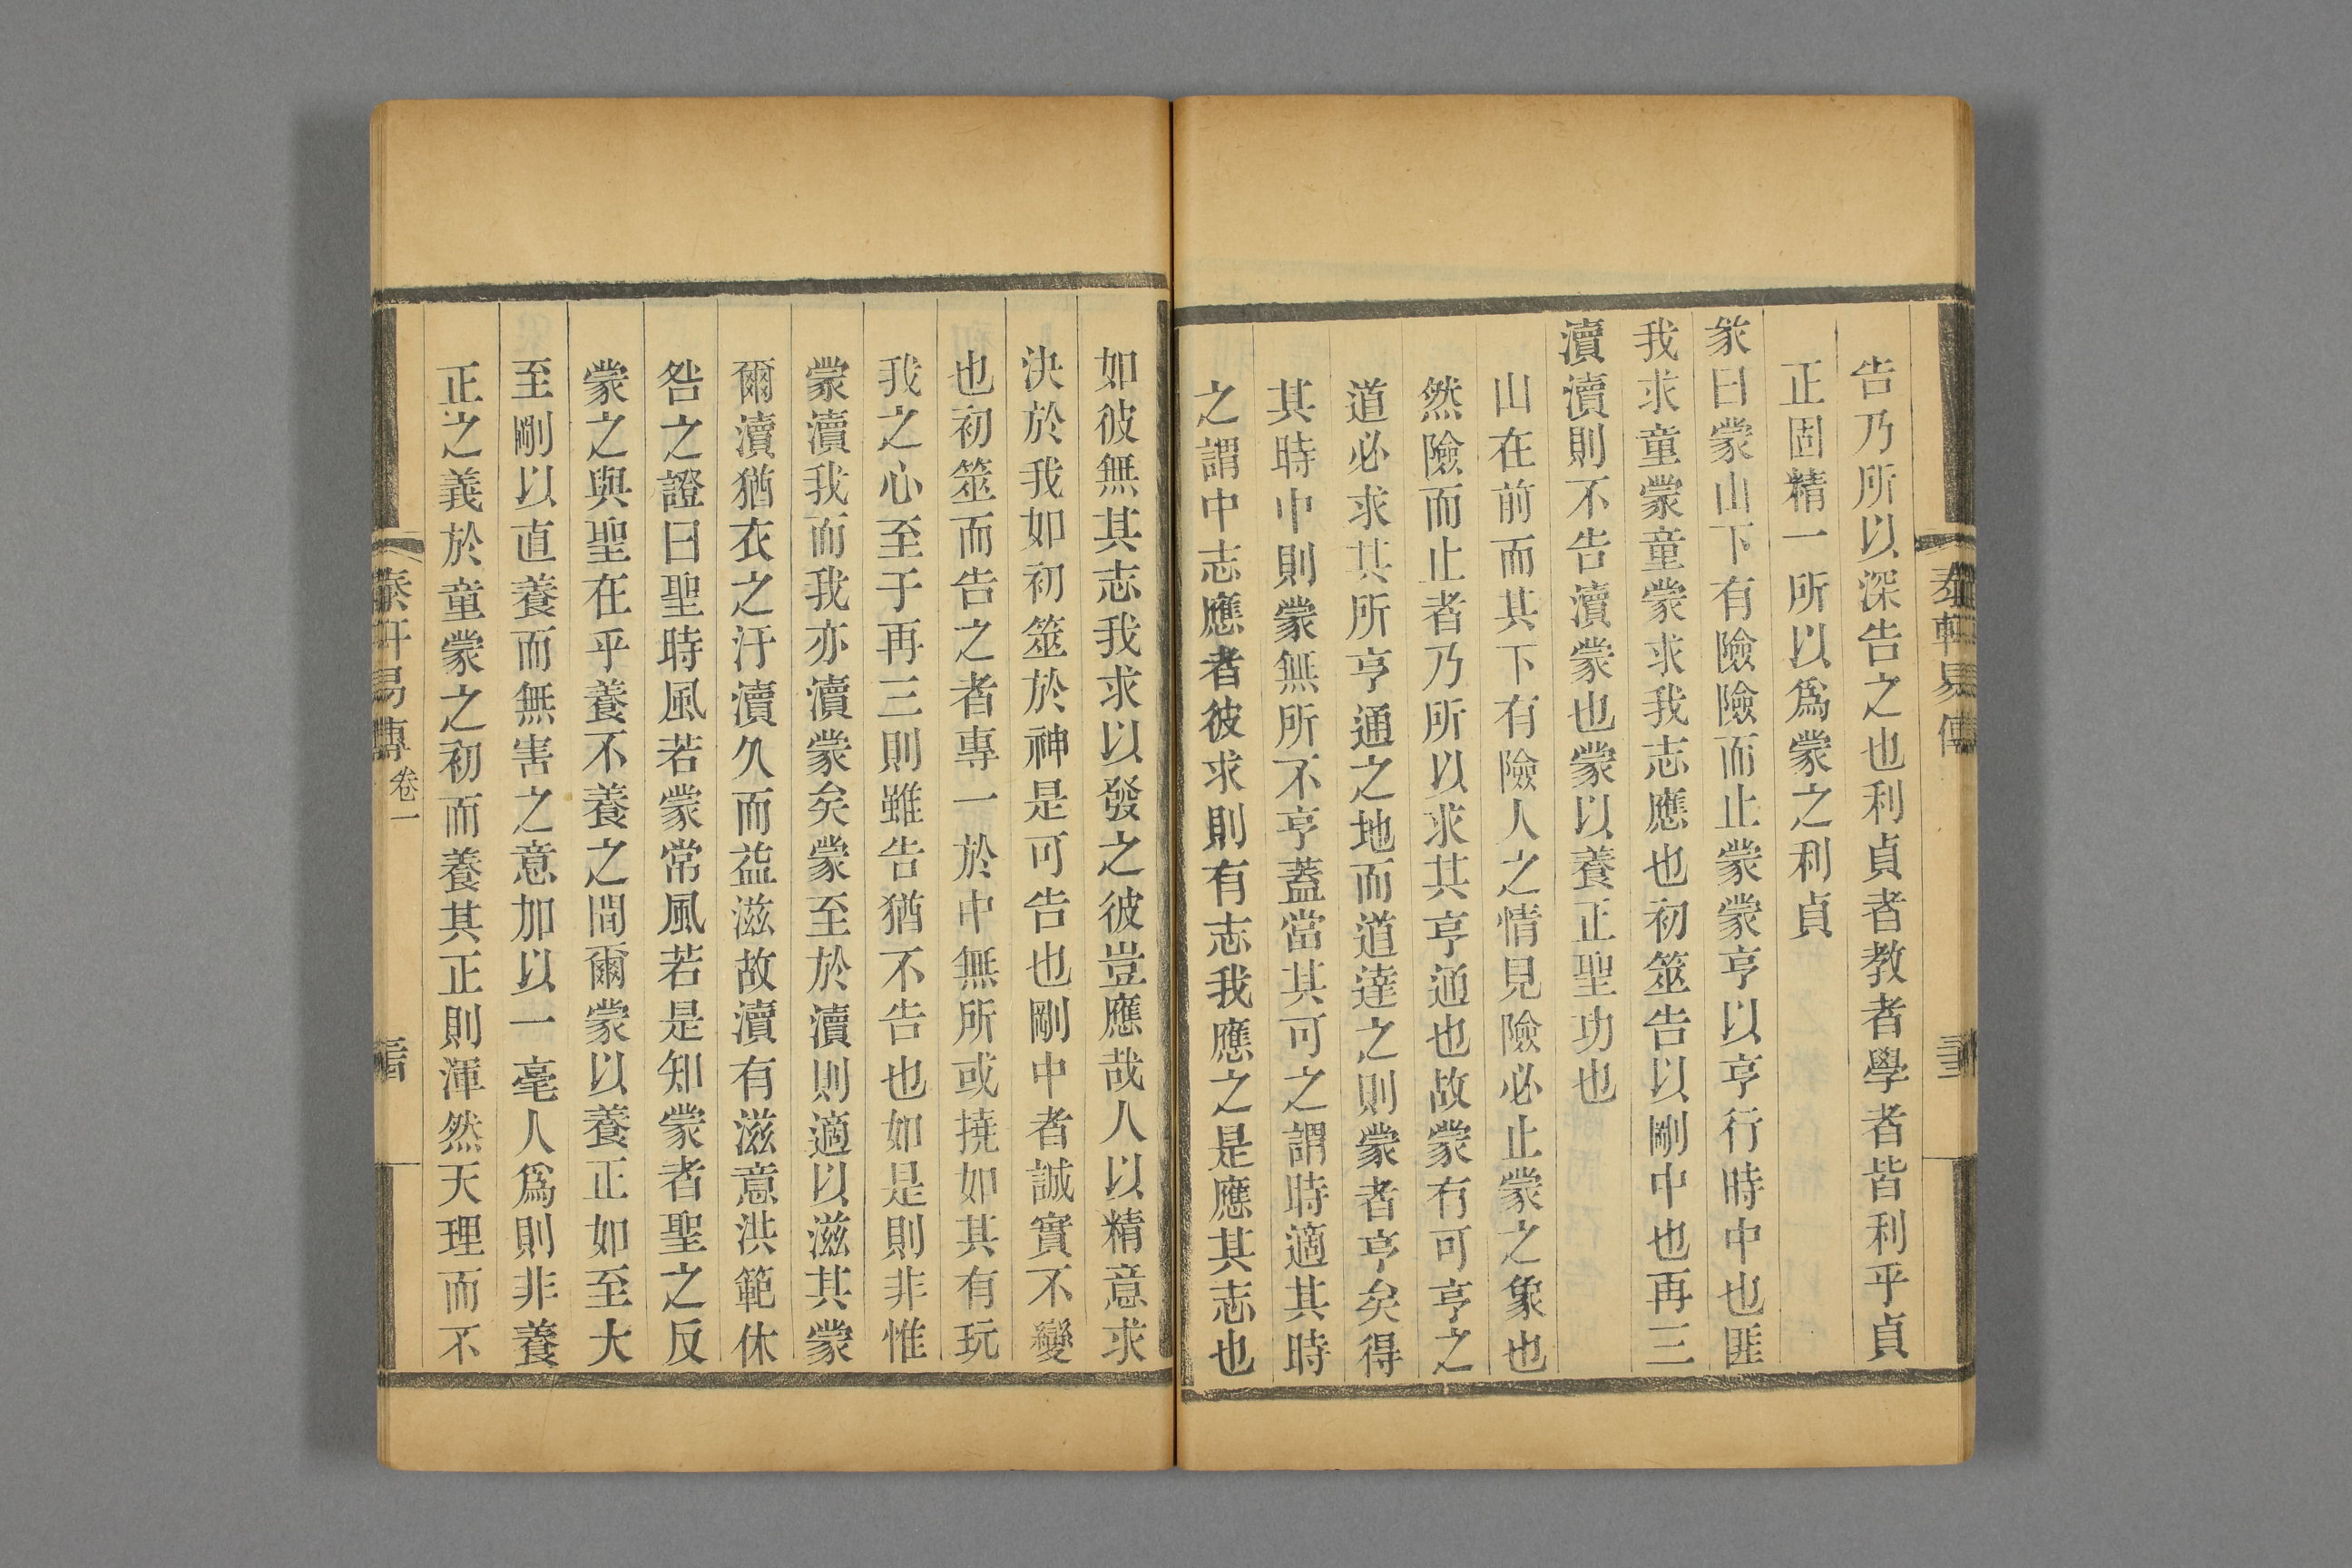 告乃所以深告之也利貞者教者學者皆利乎貞
正固精一所以爲蒙之利貞
彖曰蒙山下有險險而止蒙蒙亨以亨行時中也匪
我求童蒙童蒙求我志應也初筮告以剛中也再三
瀆瀆則不告瀆蒙也蒙以養正聖功也
山在前而其下有險人之情見險必止蒙之象也
然險而止者乃所以求其亨通也故蒙有可亨之
道必求其所亨通之地而道達之則蒙者亨矣得
其時中則蒙無所不亨蓋當其可之謂時適其時
之謂中志應者彼求則有志我應之是應其志也
如彼無其志我求以發之彼豈應哉人以精意求
決於我如初筮於神是可告也剛中者誠實不變
也初筮而告之者專一於中無所或撓如其有玩
我之心至于再三則雖告猶不告也如是則非惟
蒙瀆我而我亦瀆蒙矣蒙至於瀆則適以滋其蒙
爾瀆猶衣之汙瀆久而益滋故瀆有滋意洪範休
咎之證曰聖時風若蒙常風若是知蒙者聖之反
蒙之與聖在乎養不養之間爾蒙以養正如至大
至剛以直養而無害之意加以一毫人爲則非養
正之義於童蒙之初而養其正則渾然天理而不
泰軒易傳
卷一